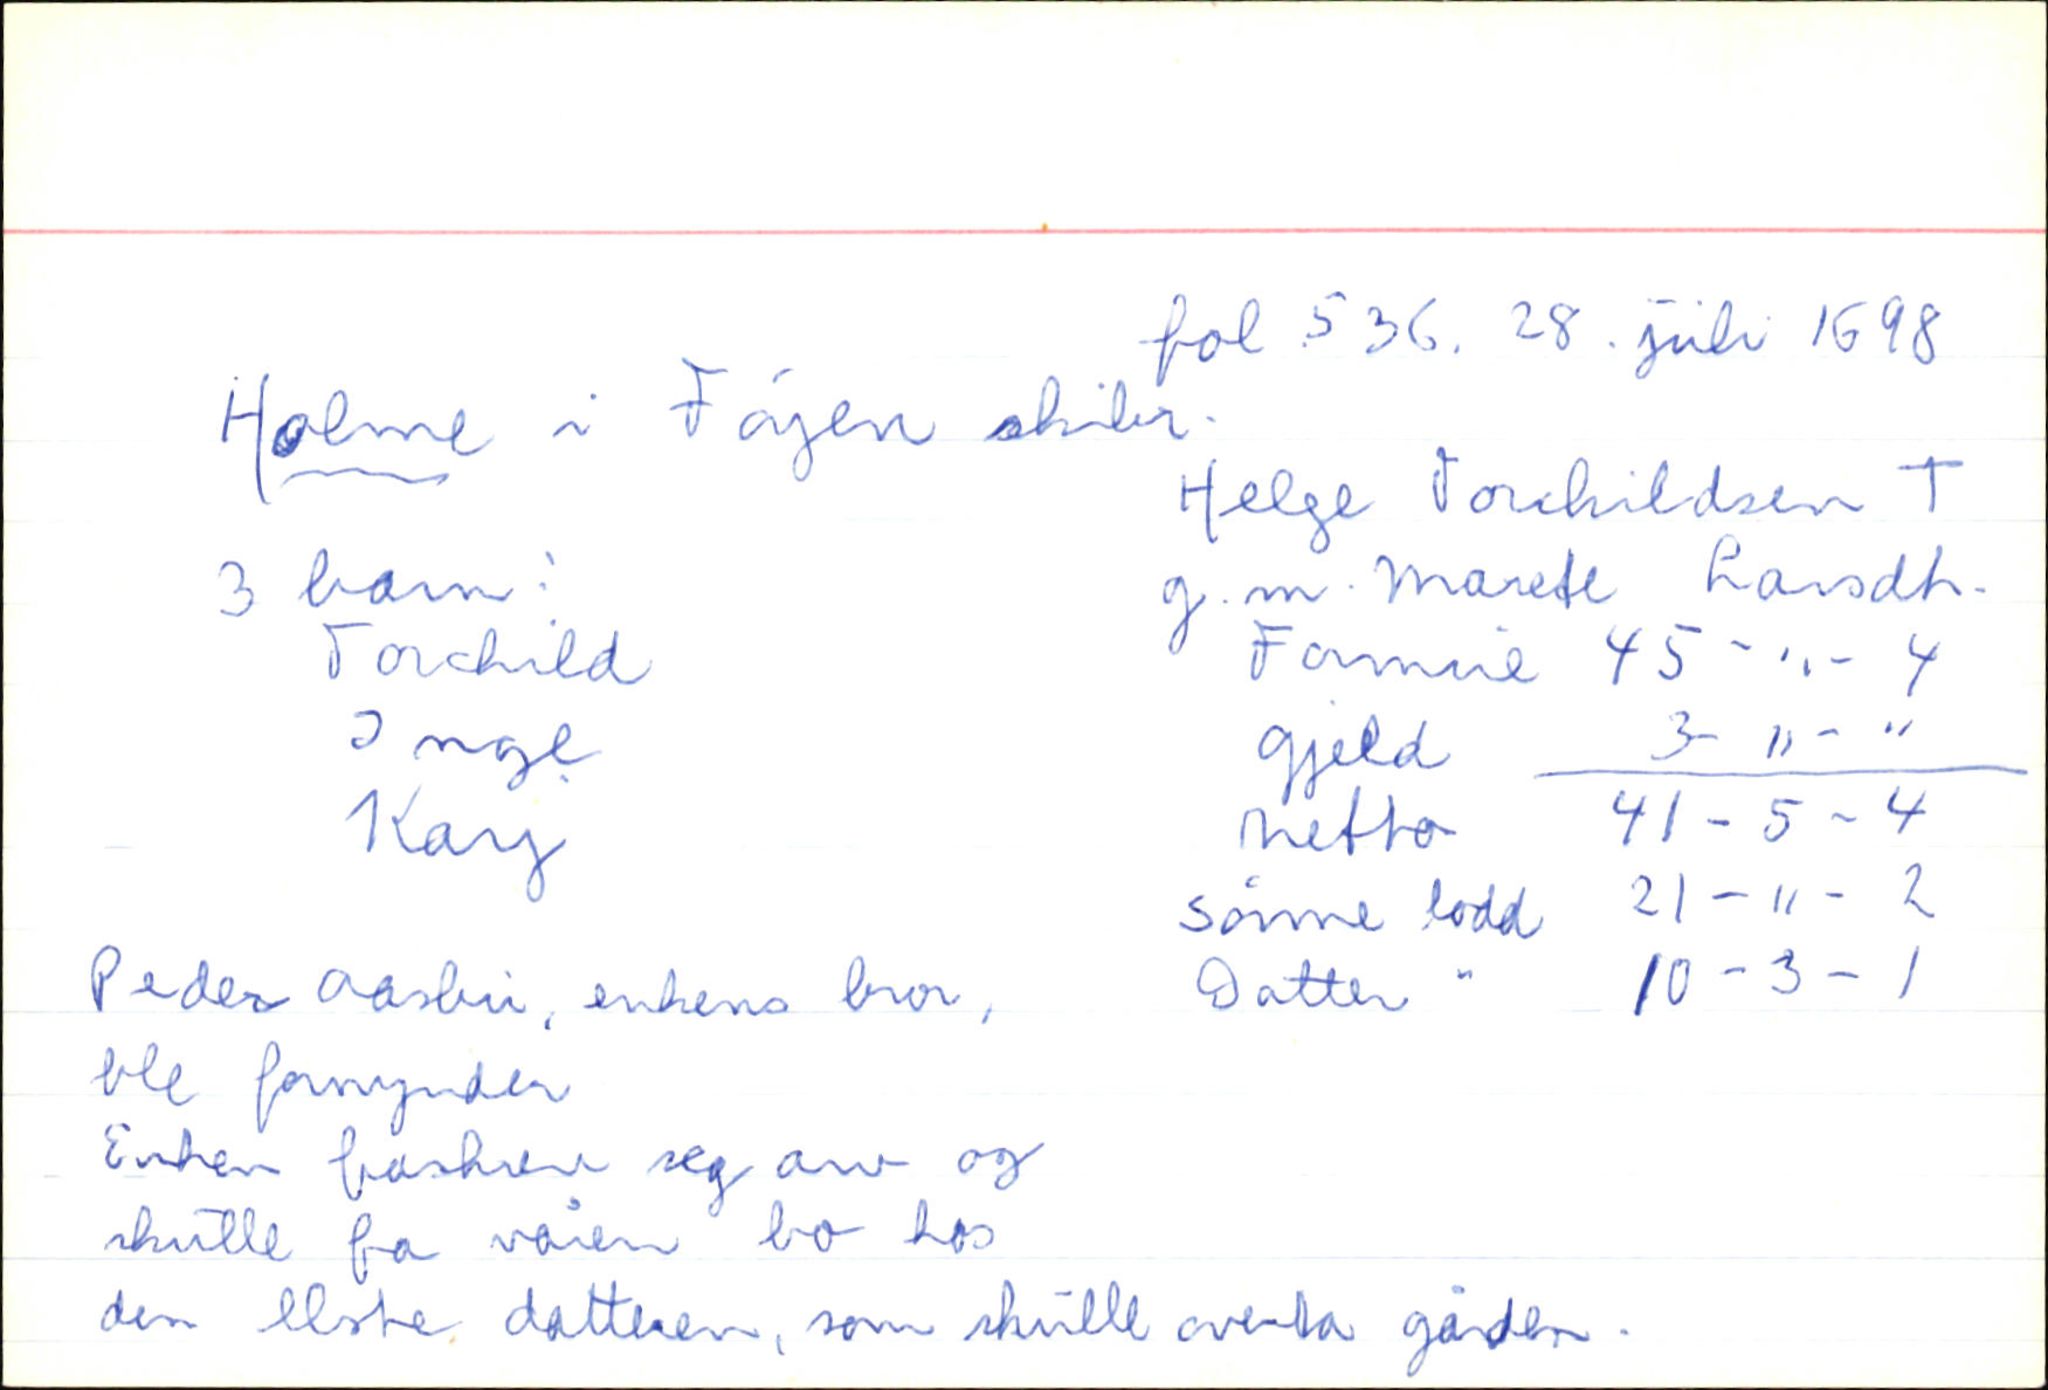 fol 536. 28. juli 1698
Holme i Føyen skibr.
Helge Torchildsen †
3 barn: g.m. Marete Larsdtr.
Torchild Formue 45 - " - 4
Inge Gjeld 3 - " - "
Kary Netto 41 - 5 - 4
sønne lodd 21 - " - 2
Peder Aasbu, enkens bror, Datter " 10 - 3 - 1
ble formynder
Enken fraskrev seg arv og
skulle fra våren bo hos
den elste datteren, som skulle overta gården.